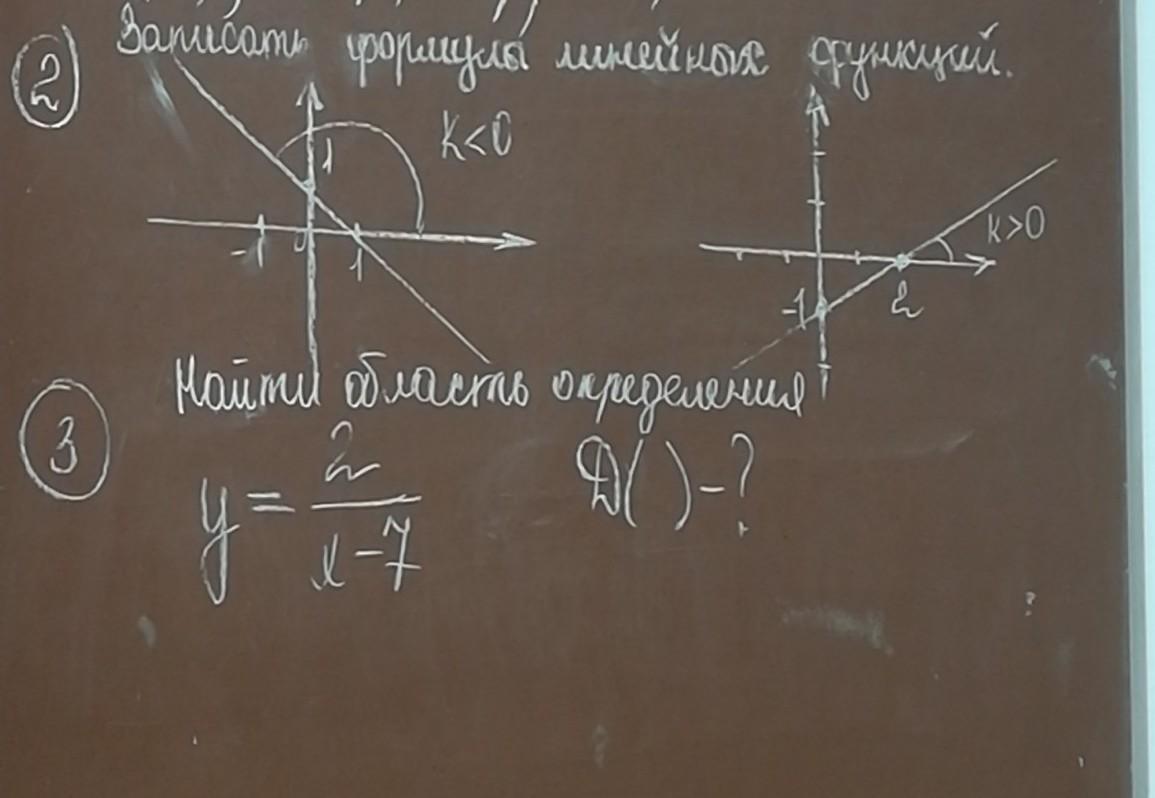 ② Записать формулы линейных функций.
1 K<0
-1 0 1
K>0
-1 2
③ Найти область определения
y = 2/(x-7) D( )-?